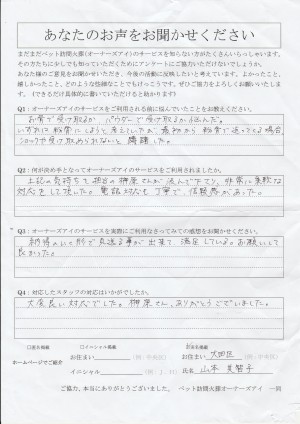 あなたのお声をお聞かせください
まだまだペット訪問火葬（オーナーズアイ）のサービスを知らない方がたくさんいらっしゃいます。
そのお力に少しでも知っていただくためにアンケートにご協力いただけないでしょうか。
あなた様のご意見をお聞かせいただき、今後の活動に反映したいと考えています。よかったこと、
嬉しかったこと、どのような些細なことでもけっこうです。ぜひご協力をよろしくお願いいたします。
（できるだけ具体的に書いていただけると助かります）
Q1：オーナーズアイのサービスをご利用される前に悩んでいたことをお教えください。
お骨で受け取るか、パウダーで受け取るか悩んだ。
いずれは粉骨にしようと考えていたが、最初から粉骨で返ってくる場合、
ショックや受け止められないと躊躇した。
Q2：何が決め手となってオーナーズアイのサービスをご利用されましたか。
上記の気持ちを担当の榊原さんが汲んで下さり、非常に柔軟な
対応をして頂いた。電話対応も丁寧で、信頼感があった。
Q3：オーナーズアイのサービスを実際にご利用なさってみての感想をお聞かせください。
納得のいく形で見送る事が出来て、満足している。お願いして
良かった。
Q4：対応したスタッフの対応はいかがでしたか。
大変良い対応でした。榊原さん、ありがとうございました。
□匿名掲載 □イニシャル掲載 お名前掲載
お住まい （例：中央区） お住まい 大田区
ホームページでご紹介
イニシャル （例：J．H） 氏名 山本 美智子
ご協力、本当にありがとうございました。 ペット訪問火葬オーナーズアイ 一同